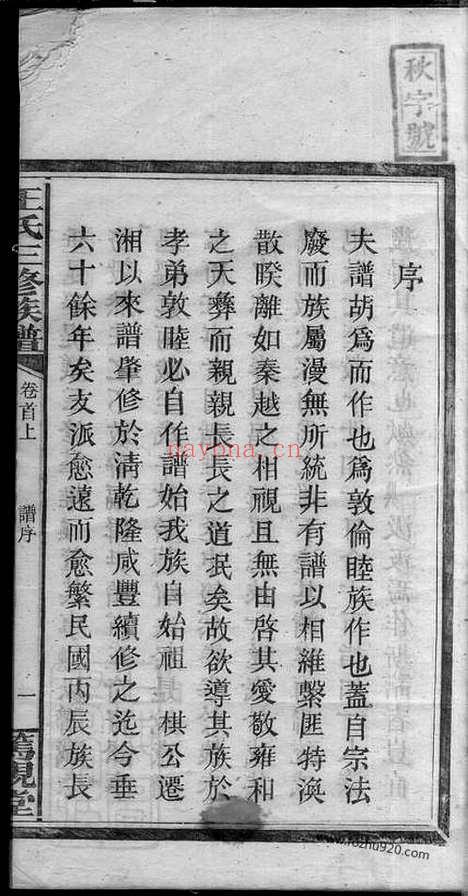 秋字號
序
夫譜胡爲而作也爲敦倫睦族作也蓋自宗法
廢而族屬漫無所統非有譜以相維繫匪特渙
散暌離如秦越之相視且無由啓其愛敬雍和
之天彝而親親長長之道泯矣故欲導其族於
孝弟敦睦必自作譜始我族自始祖 棋公遷
湘以來譜肇修於淸乾隆咸豐續修之迄今垂
六十餘年矣支派愈遠而愈繁民國丙辰族長
王氏三修族譜
卷首上
譜序
一
篤親堂
nayona.cn
www.fozhu920.com